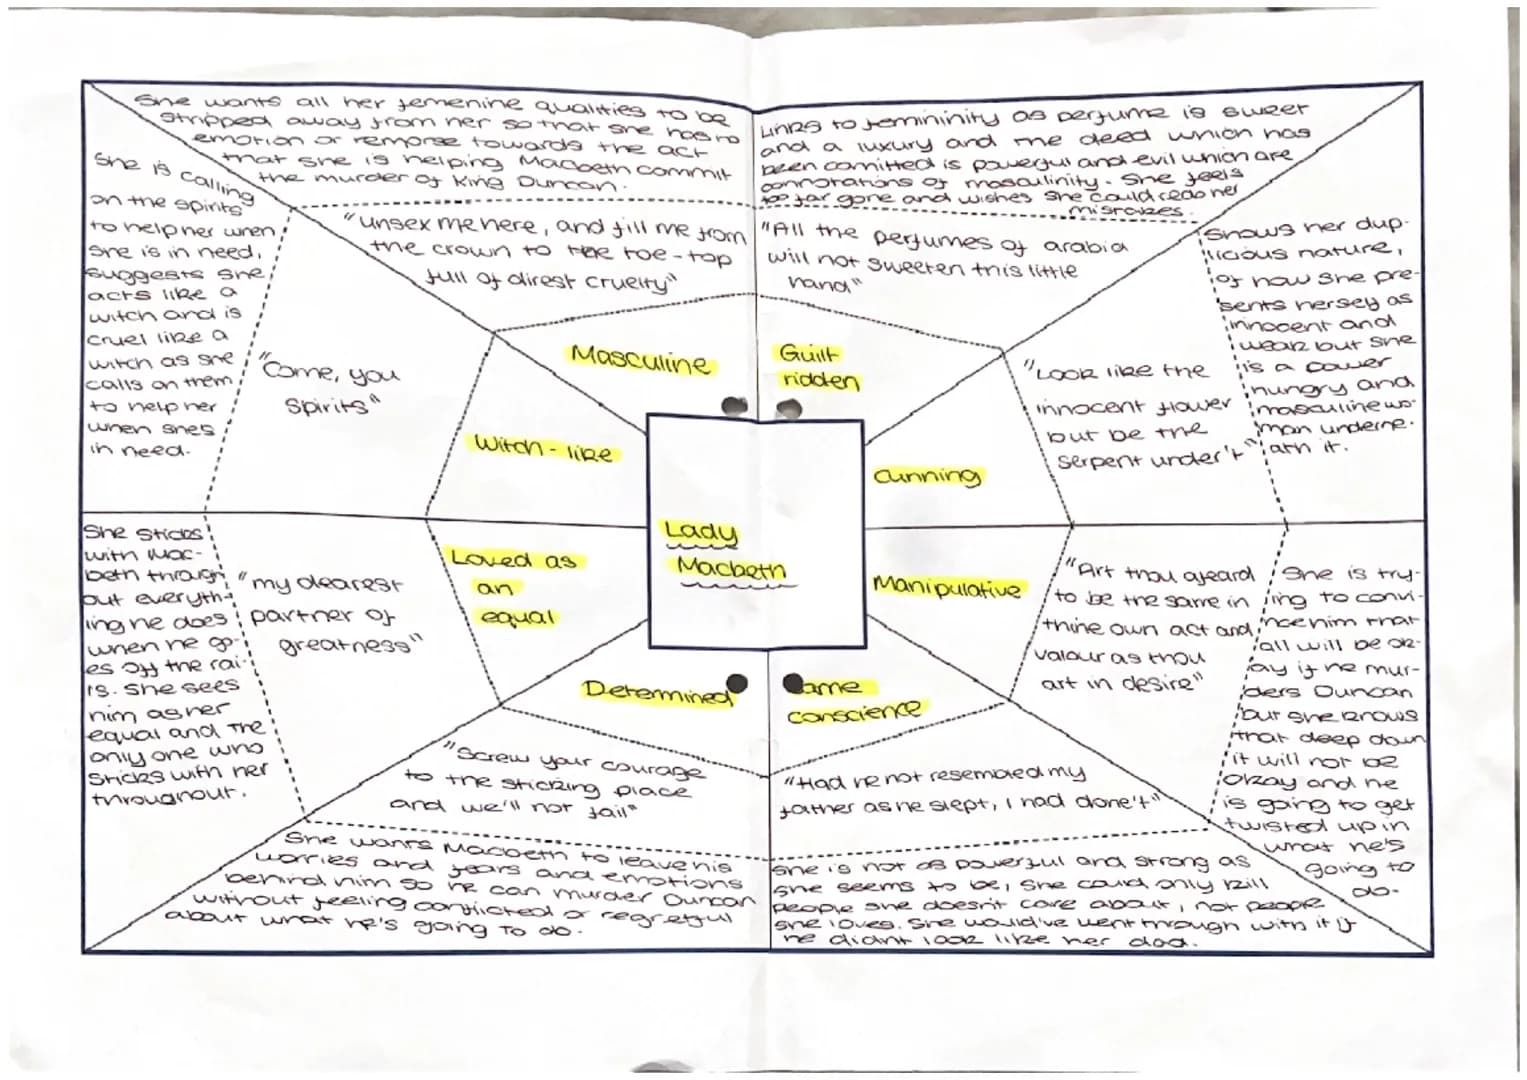 She wants all her femenine qualities to be
stripped away from her so that she has no
emotion or remorse towards the act
that she is helping Macbeth commit
the murder of King Duncan.
"unsex me here, and fill me from
the crown to the toe-top
full of direst cruelty"
Masculine
Links to femininity as perfume is sweet
and a luxury and the deed which has
been comitted is powerful and evil which are
connotations of masculinity. She feels
too far gone and wishes she could redo her
mistakes.
"All the perfumes of arabia
will not sweeten this little
hand"
Guilt
ridden
She is calling
on the spirits
to help her when
she is in need,
suggests she
acts like a
witch and is
cruel like a
witch as she
calls on them
to help her
when shes
in need.
"Come, you
Spirits"
Witch-like
Shows her dup-
licious nature,
of how she pre-
sents herself as
innocent and
weak but she
is a power
hungry and
masculine wo-
man underne-
ath it.
"Look like the
innocent flower
but be the
serpent under't"
Cunning
Lady
Macbeth
She sticks
with Mac-
beth through
out everyth-
ing he does
when he go-
es off the rai-
ls. She sees
him as her
equal and the
only one who
sticks with her
throughout.
"my dearest
partner of
greatness"
Loved as
an
equal
Manipulative
"Art thou afeard
to be the same in
thine own act and
valour as thou
art in desire"
She is try-
ing to convi-
nce him that
all will be ok-
ay if he mur-
ders Duncan
but she knows
that deep down
it will not be
okay and he
is going to get
twisted up in
what he's
going to
do.
Determined
"Screw your courage
to the sticking place
and we'll not fail"
She wants Macbeth to leave his
worries and fears and emotions
behind him so he can murder Duncan
without feeling conflicted or regretful
about what he's going to do.
ame
conscience
"Had he not resembled my
father as he slept, I had done't"
She is not as powerful and strong as
she seems to be, she could only kill
people she doesn't care about, not people
she loves. She would've went through with it if
he didnt look like her dad.